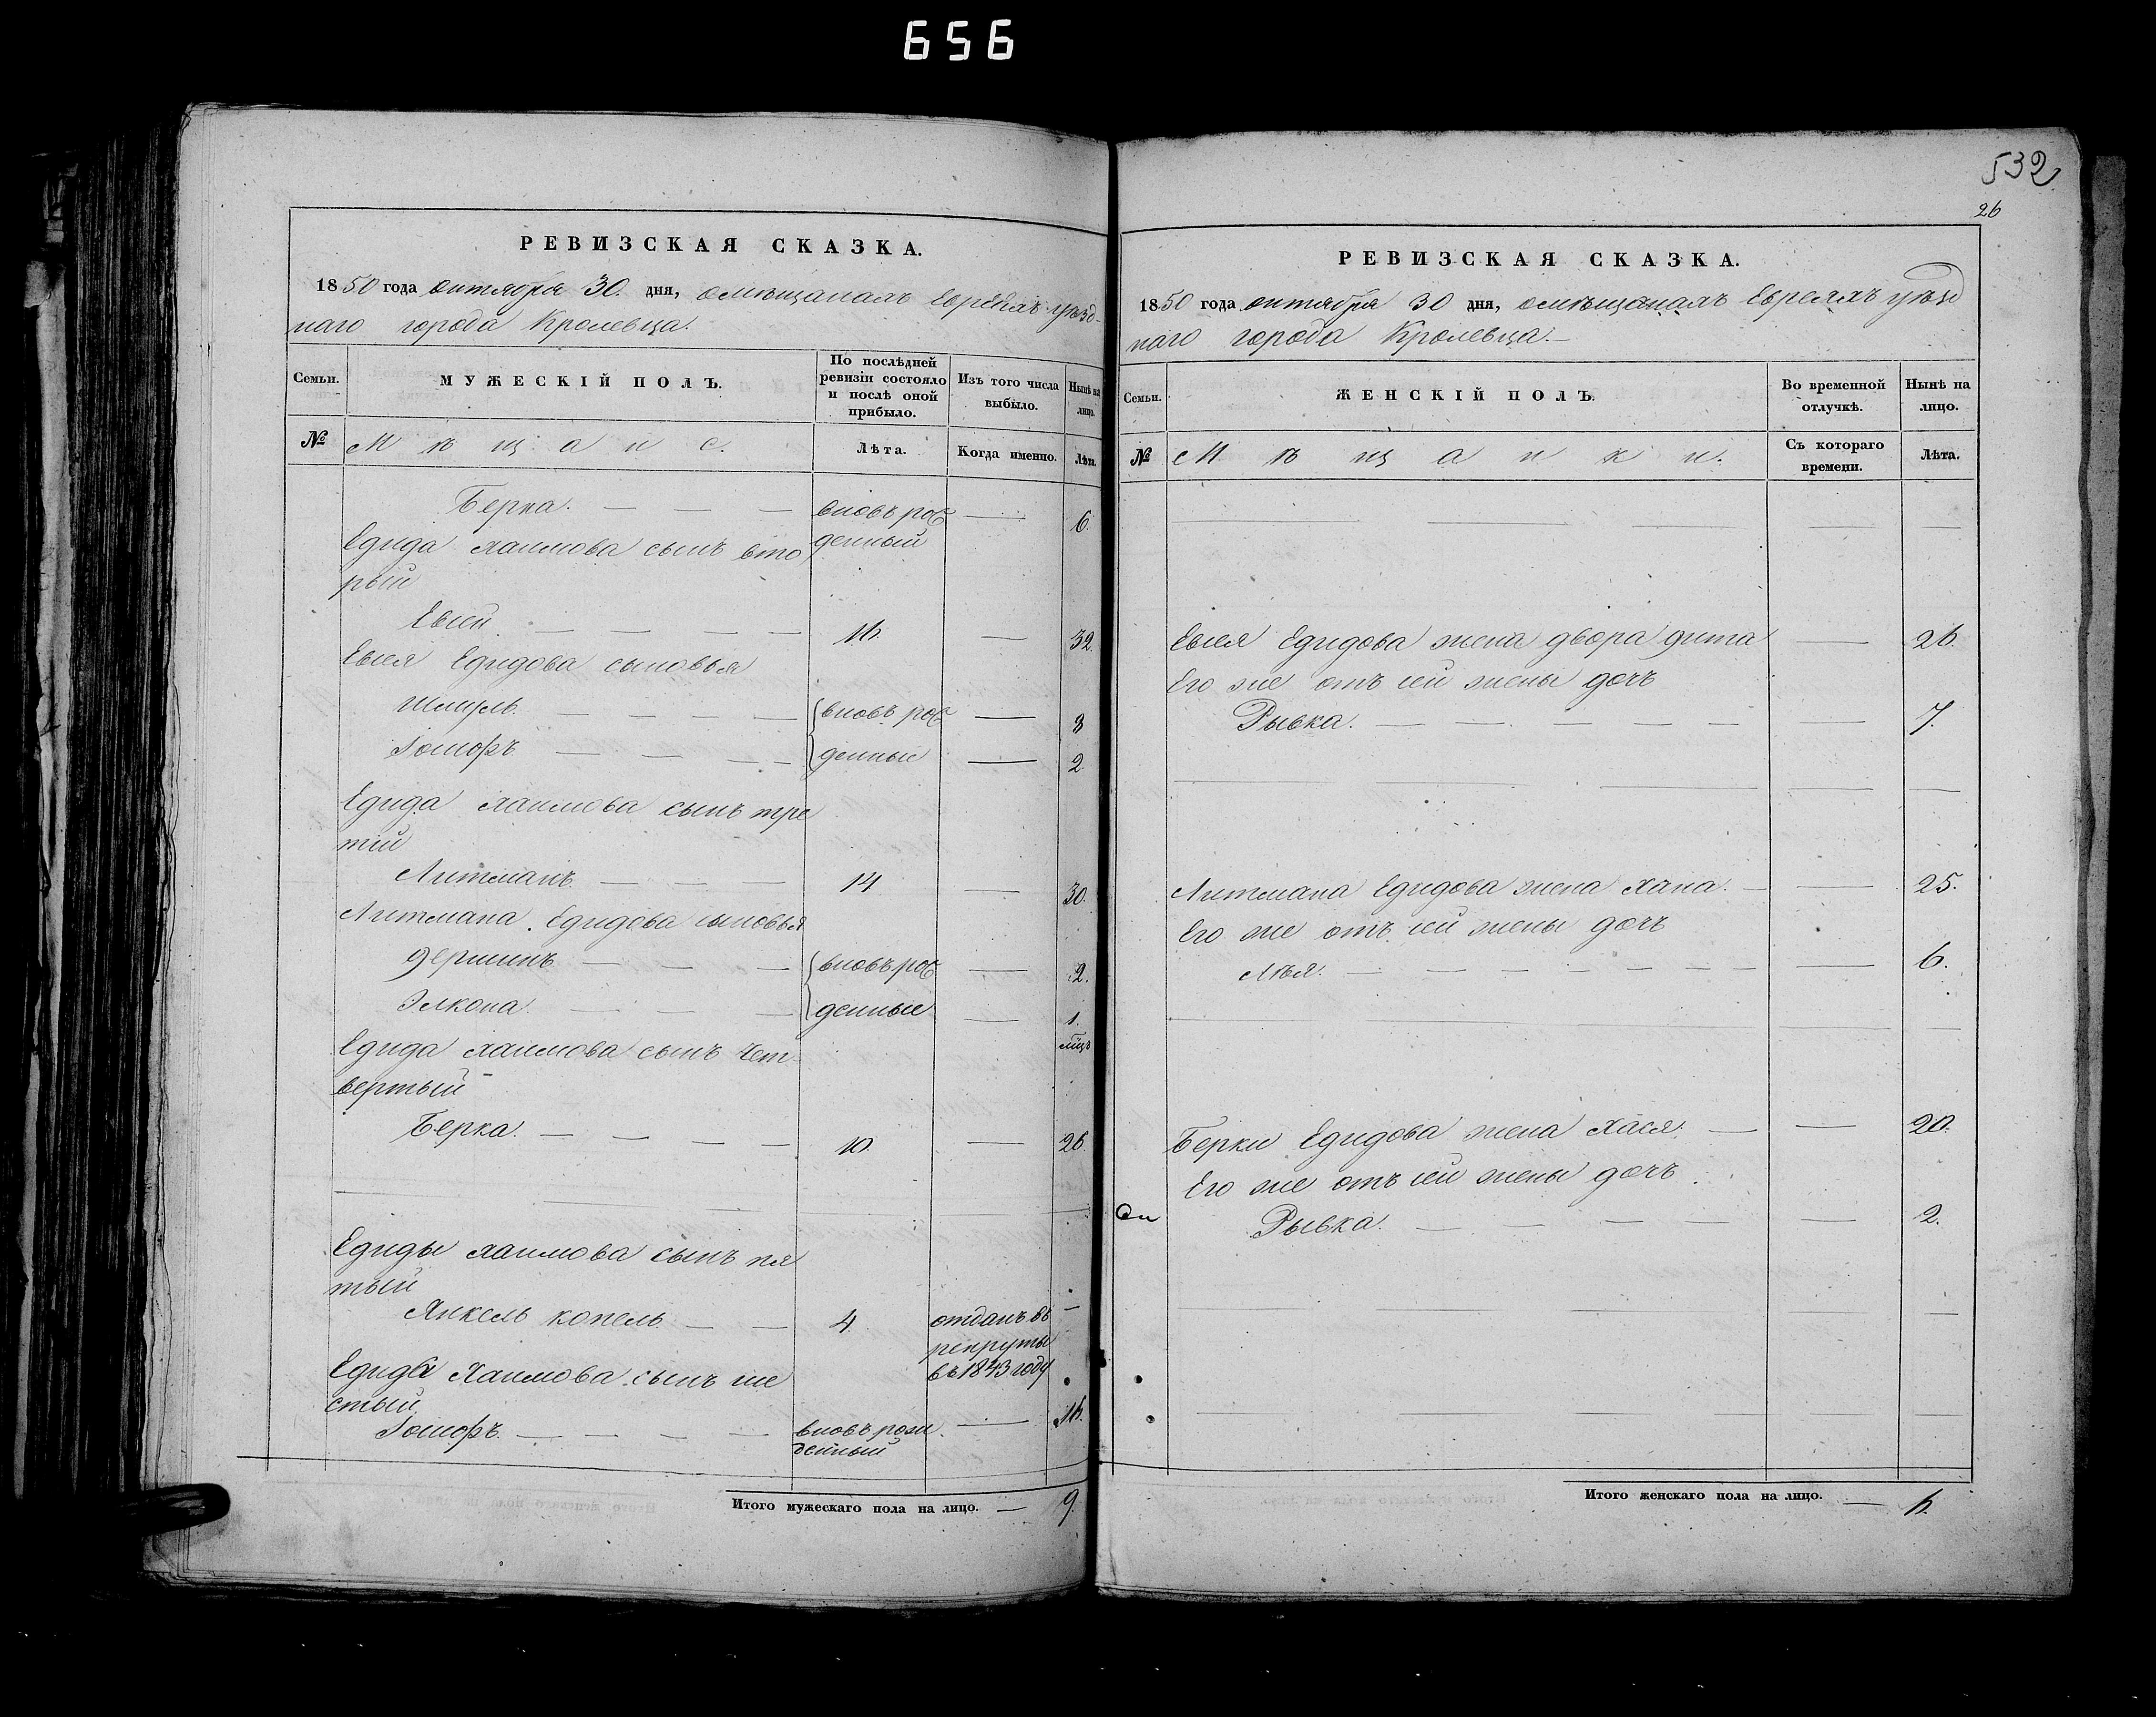 656
РЕВИЗСКАЯ СКАЗКА.
1850 года октября 30. дня, омѣщанахъ Евреяхъ уѣзд-
наго города Кролевца.
Семьи.
МУЖЕСКІЙ ПОЛЪ.
По послѣдней ревизіи состояло и послѣ оной прибыло.
Изъ того числа выбыло.
Нынѣ на лицо.
№
Мѣщане.
Лѣта.
Когда именно.
Лѣта.
Берка. — — — вновь рож — 6.
Едида Хаимова сынъ вто денный
рый
Евсей — — — — 16. — 32.
Евсея Едидова сыновья
Шмуль. — — — — вновь рож — 3
Іосифъ — — — — денные — 2
Едида Хаимова сынъ тре
тій
Литманъ — — — 14 — 30.
Литмана Едидова сыновья
— — — вновь рож — 2.
Элкона. — — — денные — 1.
Едида Хаимова сынъ чет-
вертый
Берка. — — — — 10. — 26
Едиды Хаимова сынъ пя
тый
Янкель копель — — 4. отданъ въ —
рекруты
Едида Хаимова сынъ ше въ 1843 году
стый.
Іосифъ. — — — — вновь рож — 16.
денный
Итого мужескаго пола на лицо. — 9.
532
26
РЕВИЗСКАЯ СКАЗКА.
1850 года октября 30 дня, омѣщанахъ Евреяхъ уѣзд
наго города Кролевца. —
Семьи.
ЖЕНСКІЙ ПОЛЪ.
Во временной отлучкѣ.
Нынѣ на лицо.
№
Мѣщанки.
Съ котораго времени.
Лѣта.
Евсея Едидова жена двора — 26.
Его же отъ сей жены дочь
Рывка. — — — — — — 7.
Литмана Едидова жена Хана. — — 25.
Его же отъ сей жены дочь
Лѣя. — — — — — — — 6.
Берки Едидова жена Хася. — — 20.
Его же отъ сей жены дочь
Рывка. — — — — — 2.
Итого женскаго пола на лицо. — 6.